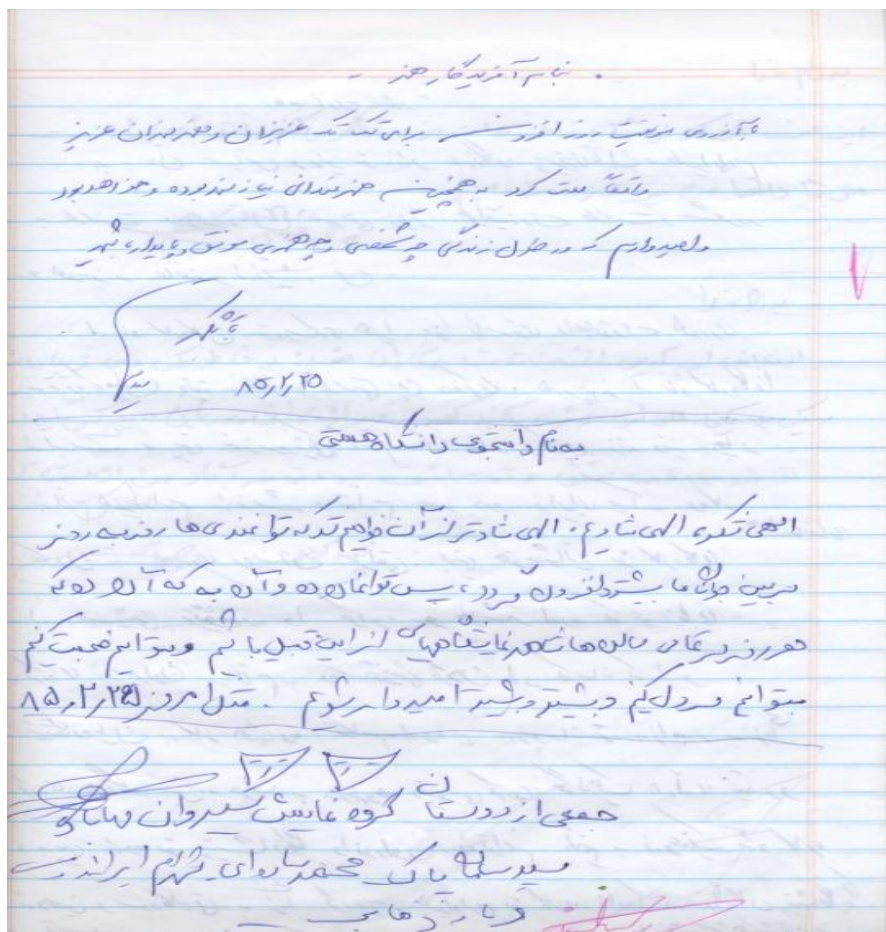 بنام آفریدگار هنر
با آرزوی موفقیت روز افزون برای تک تک عزیزان و هنرمندان عزیز
واقعاً ملت کرد به همچین هنرمندانی نیازمند بوده و خواهد بود
و امیدوارم که در طول زندگی چه شخصی و چه هنری موفق و پایدار باشید
با تشکر
۸۵/۲/۲۵
به نام دانشجوی دانشگاه هستی
الهی شکر، الهی شادیم، الهی شادتر از آن خواهیم شد که توانمندی‌ها روز به روز
در بین جوانان ما بیشتر و افزون گردد، پس توانمان ده و آن به که آن ده که
هر روز در تمامی سالن‌ها شاهد نمایشگاههای از این قبیل باشیم و بتوانیم صحبت کنیم
بتوانیم کنیم و بیشتر و بیشتر امیدوار شویم. مثل امروز ۸۵/۲/۲۵
جمعی از دوستان گروه نمایش سیروان مهاباد
سید پاک محمد شهرام ایراندوست